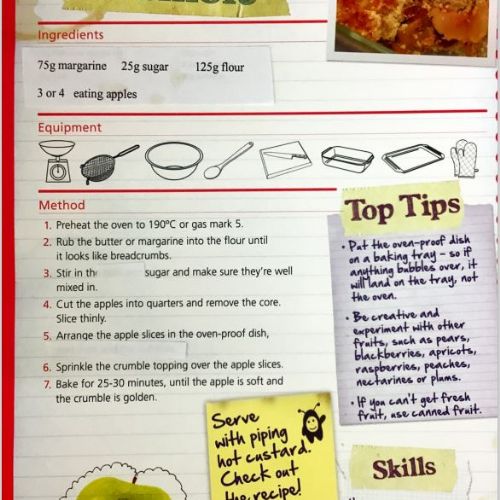 Ingredients
75g margarine 25g sugar 125g flour
3 or 4 eating apples
Equipment
Method
1. Preheat the oven to 190ºC or gas mark 5.
2. Rub the butter or margarine into the flour until
it looks like breadcrumbs.
3. Stir in th sugar and make sure they're well
mixed in.
4. Cut the apples into quarters and remove the core.
Slice thinly.
5. Arrange the apple slices in the oven-proof dish,
6. Sprinkle the crumble topping over the apple slices.
7. Bake for 25-30 minutes, until the apple is soft and
the crumble is golden.
Top Tips
• Put the oven-proof dish
on a baking tray – so if
anything bubbles over, it
will land on the tray, not
the oven.
• Be creative and
experiment with other
fruits, such as pears,
blackberries, apricots,
raspberries, peaches,
nectarines or plums.
• If you can't get fresh
fruit, use canned fruit.
Serve
with piping
hot custard.
Check out
the recipe!
Skills